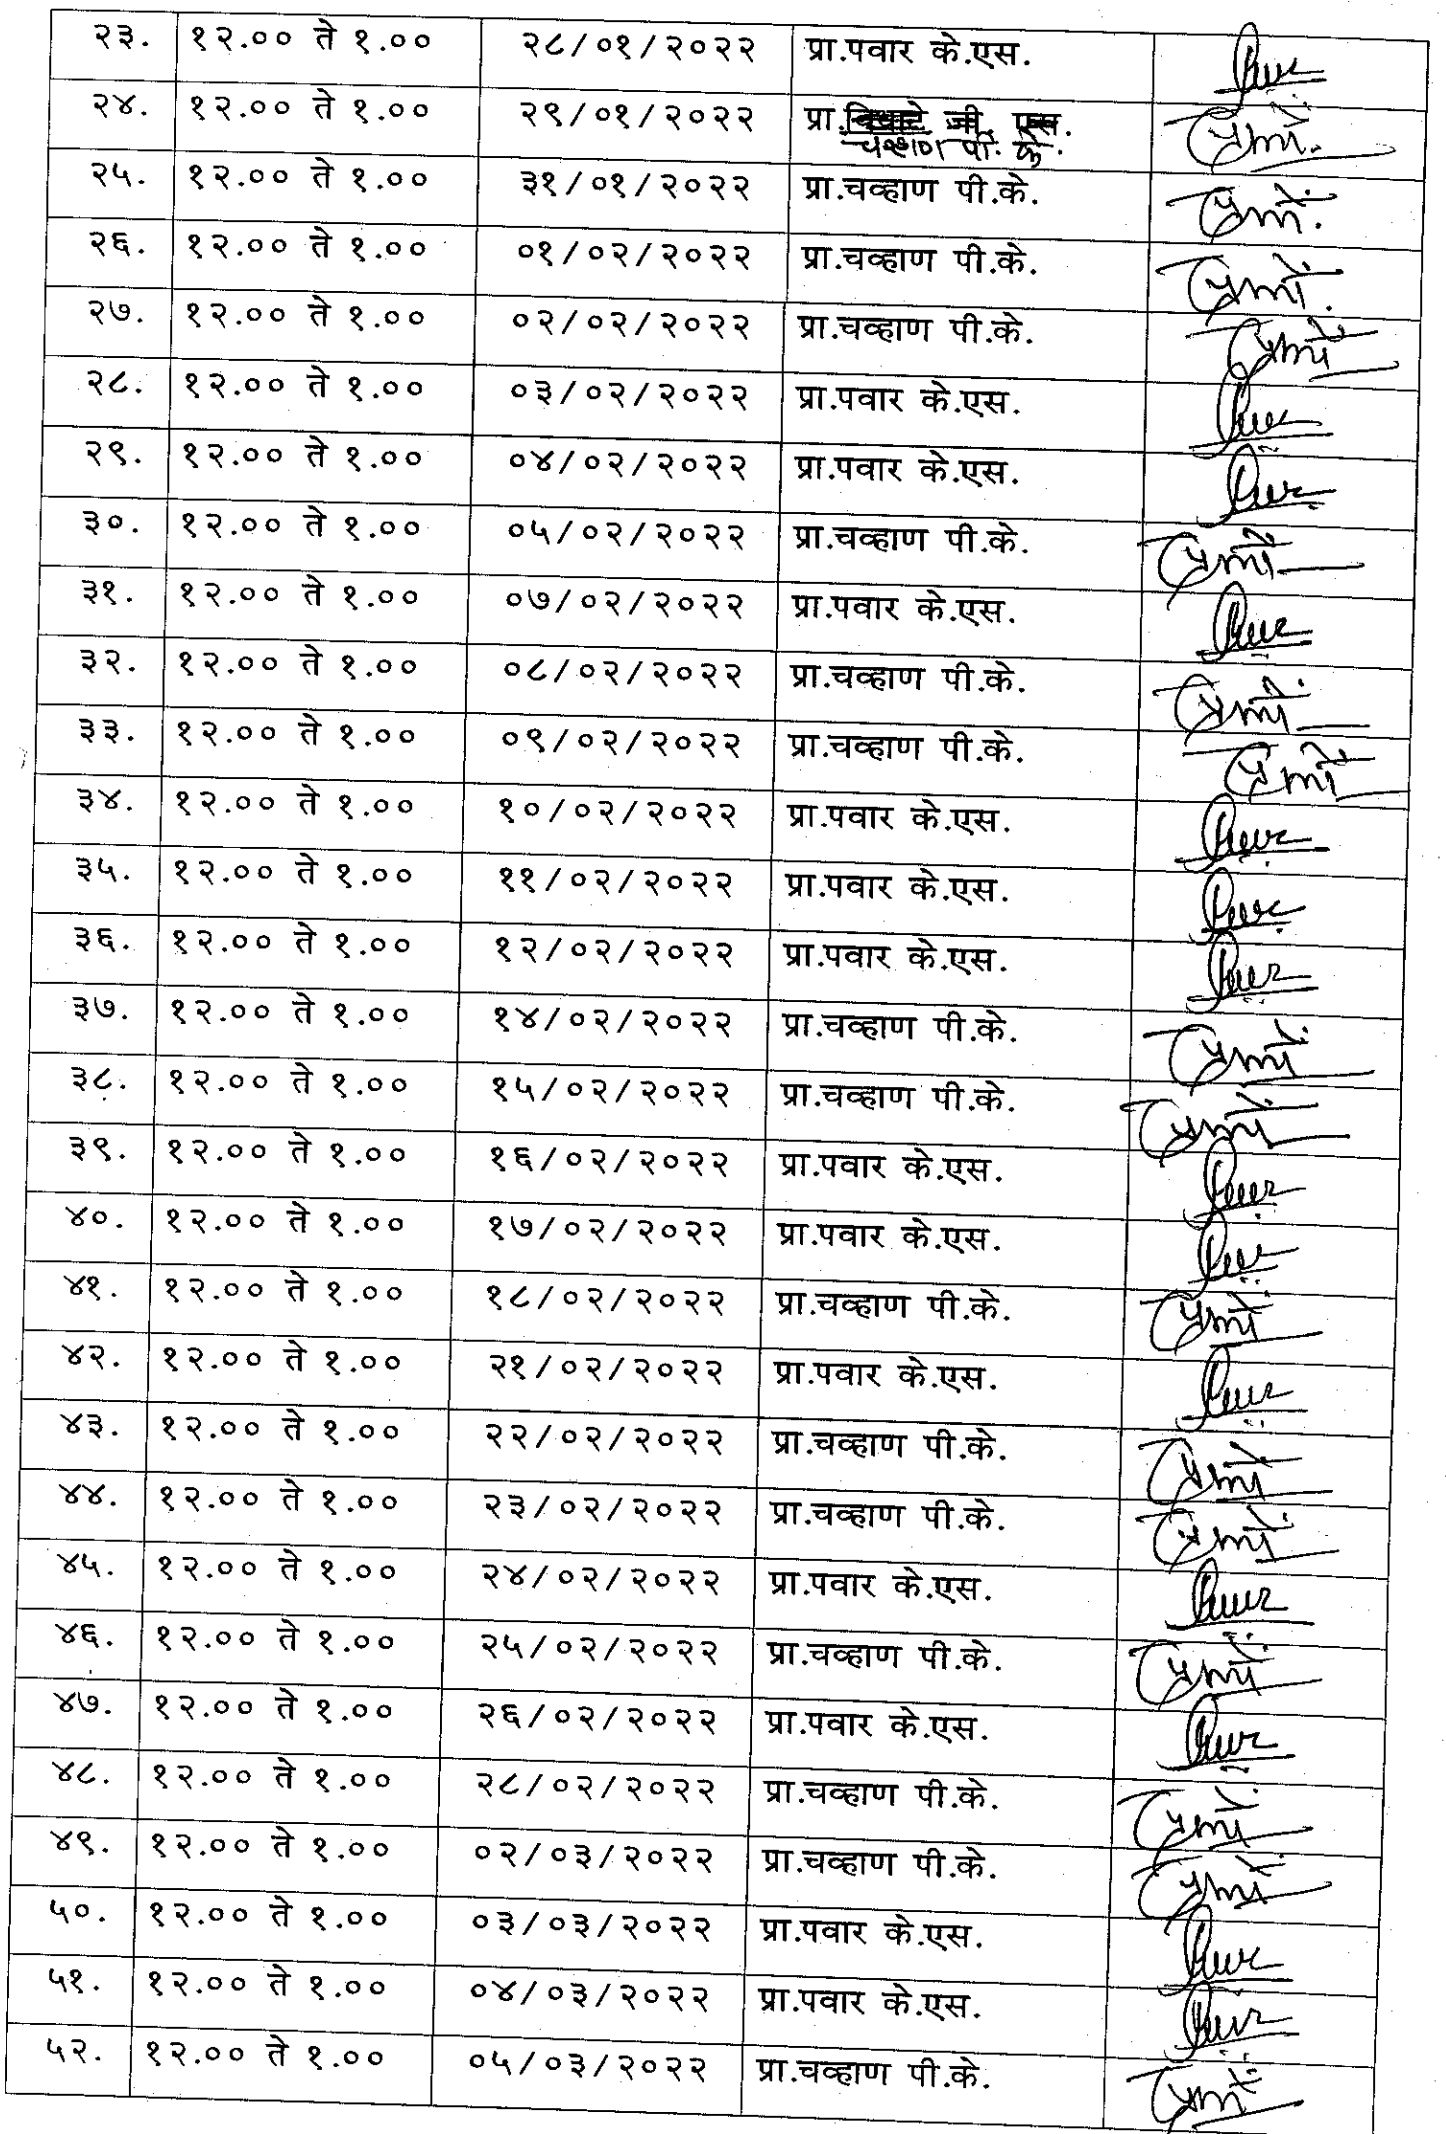 २३. १२.०० ते १.०० २८/०१/२०२२ प्रा.पवार के.एस.
२४. १२.०० ते १.०० २९/०१/२०२२ प्रा. जी. एस.
चव्हाण पी. के.
२५. १२.०० ते १.०० ३१/०१/२०२२ प्रा.चव्हाण पी.के.
२६. १२.०० ते १.०० ०१/०२/२०२२ प्रा.चव्हाण पी.के.
२७. १२.०० ते १.०० ०२/०२/२०२२ प्रा.चव्हाण पी.के.
२८. १२.०० ते १.०० ०३/०२/२०२२ प्रा.पवार के.एस.
२९. १२.०० ते १.०० ०४/०२/२०२२ प्रा.पवार के.एस.
३०. १२.०० ते १.०० ०५/०२/२०२२ प्रा.चव्हाण पी.के.
३१. १२.०० ते १.०० ०७/०२/२०२२ प्रा.पवार के.एस.
३२. १२.०० ते १.०० ०८/०२/२०२२ प्रा.चव्हाण पी.के.
३३. १२.०० ते १.०० ०९/०२/२०२२ प्रा.चव्हाण पी.के.
३४. १२.०० ते १.०० १०/०२/२०२२ प्रा.पवार के.एस.
३५. १२.०० ते १.०० ११/०२/२०२२ प्रा.पवार के.एस.
३६. १२.०० ते १.०० १२/०२/२०२२ प्रा.पवार के.एस.
३७. १२.०० ते १.०० १४/०२/२०२२ प्रा.चव्हाण पी.के.
३८. १२.०० ते १.०० १५/०२/२०२२ प्रा.चव्हाण पी.के.
३९. १२.०० ते १.०० १६/०२/२०२२ प्रा.पवार के.एस.
४०. १२.०० ते १.०० १७/०२/२०२२ प्रा.पवार के.एस.
४१. १२.०० ते १.०० १८/०२/२०२२ प्रा.चव्हाण पी.के.
४२. १२.०० ते १.०० २१/०२/२०२२ प्रा.पवार के.एस.
४३. १२.०० ते १.०० २२/०२/२०२२ प्रा.चव्हाण पी.के.
४४. १२.०० ते १.०० २३/०२/२०२२ प्रा.चव्हाण पी.के.
४५. १२.०० ते १.०० २४/०२/२०२२ प्रा.पवार के.एस.
४६. १२.०० ते १.०० २५/०२/२०२२ प्रा.चव्हाण पी.के.
४७. १२.०० ते १.०० २६/०२/२०२२ प्रा.पवार के.एस.
४८. १२.०० ते १.०० २८/०२/२०२२ प्रा.चव्हाण पी.के.
४९. १२.०० ते १.०० ०२/०३/२०२२ प्रा.चव्हाण पी.के.
५०. १२.०० ते १.०० ०३/०३/२०२२ प्रा.पवार के.एस.
५१. १२.०० ते १.०० ०४/०३/२०२२ प्रा.पवार के.एस.
५२. १२.०० ते १.०० ०५/०३/२०२२ प्रा.चव्हाण पी.के.